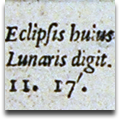 Eclipſis huius
Lunaris digit.
11. 17'.